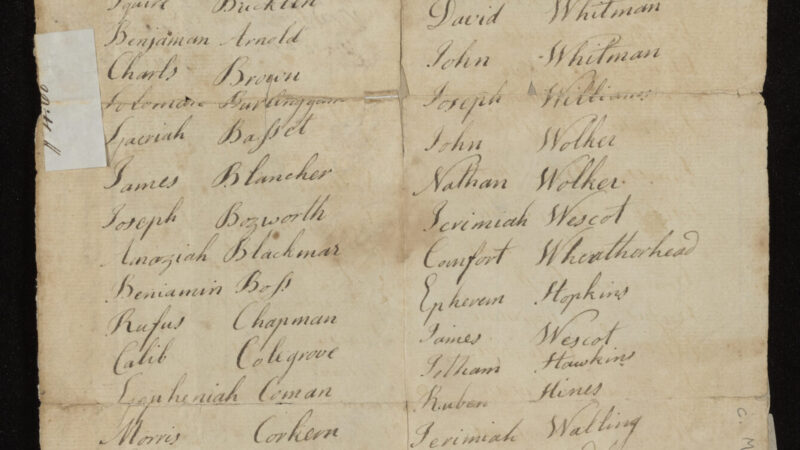 Squire Bucklin
Benjaman Arnold
Charls Brown
Soloman Burlinggam
Zacriah Basset
James Blancher
Joseph Bozworth
Amaziah Blackmar
Beniamin Boss
Rufus Chapman
Calib Colegrove
Zepheniah Coman
Morris Corkern
David Whitman
John Whitman
Joseph Williams
John Wolker
Nathan Wolker
Jerimiah Wescot
Comfort Wheatherhead
Epherem Hopkins
James Wescot
Pelham Hawkins
Ruben Hines
Jerimiah Watling
14.00
C. M